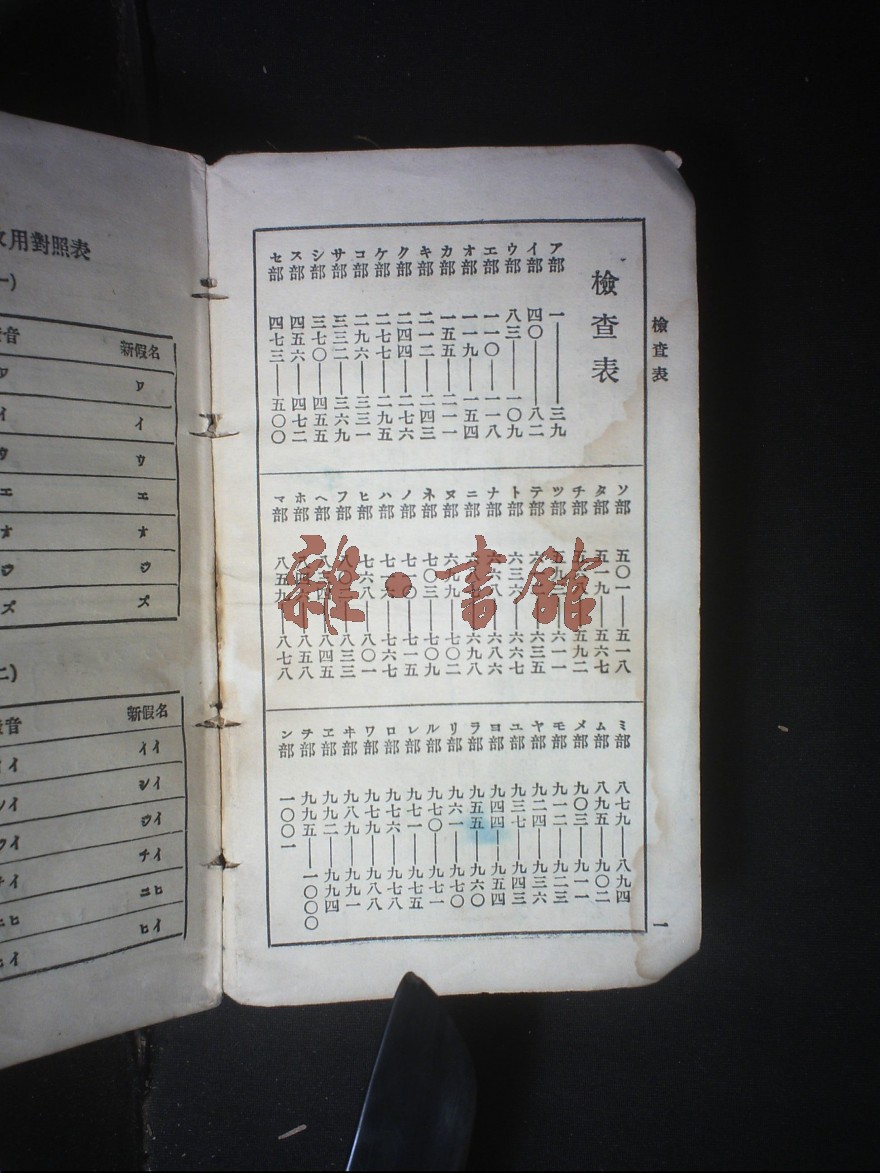 檢查表
檢查表
ア部 一——三九
イ部 四〇——八二
ウ部 八三——一〇九
エ部 一一〇——一一八
オ部 一一九——一五四
カ部 一五五——二一一
キ部 二一二——二四三
ク部 二四四——二七六
ケ部 二七七——二九五
コ部 二九六——三三一
サ部 三三二——三六九
シ部 三七〇——四五五
ス部 四五六——四七二
セ部 四七三——五〇〇
ソ部 五〇一——五一八
タ部 五一九——五六七
チ部 五九二
ツ部 六一一
テ部 六三五
ト部 六三六——六六七
ナ部 六八六
ニ部 六九八
ヌ部 六九九——七〇二
ネ部 七〇三——七〇九
ノ部 七一〇——七一五
ハ部 七六七
ヒ部 七六八——八〇一
フ部 八三三
ヘ部 八四五
ホ部 八五八
マ部 八五九——八七八
ミ部 八七九——八九四
ム部 八九五——九〇二
メ部 九〇三——九一一
モ部 九一二——九二三
ヤ部 九二四——九三六
ユ部 九三七——九四三
ヨ部 九四四——九五四
ラ部 九五五——九六〇
リ部 九六一——九七〇
ル部 九七〇——九七一
レ部 九七一——九七五
ロ部 九七六——九七八
ワ部 九七九——九八八
ヰ部 九八九——九九一
ヱ部 九九二——九九四
ヲ部 九九五——一〇〇〇
ン部 一〇〇一
一
用對照表
音 新假名
ワ
イ イ
ウ ウ
エ エ
オ オ
ウ ウ
ズ ズ
音 新假名
イ イイ
イ シイ
イ ウイ
イ チイ
ニヒ
イ ヒイ
雜·書館